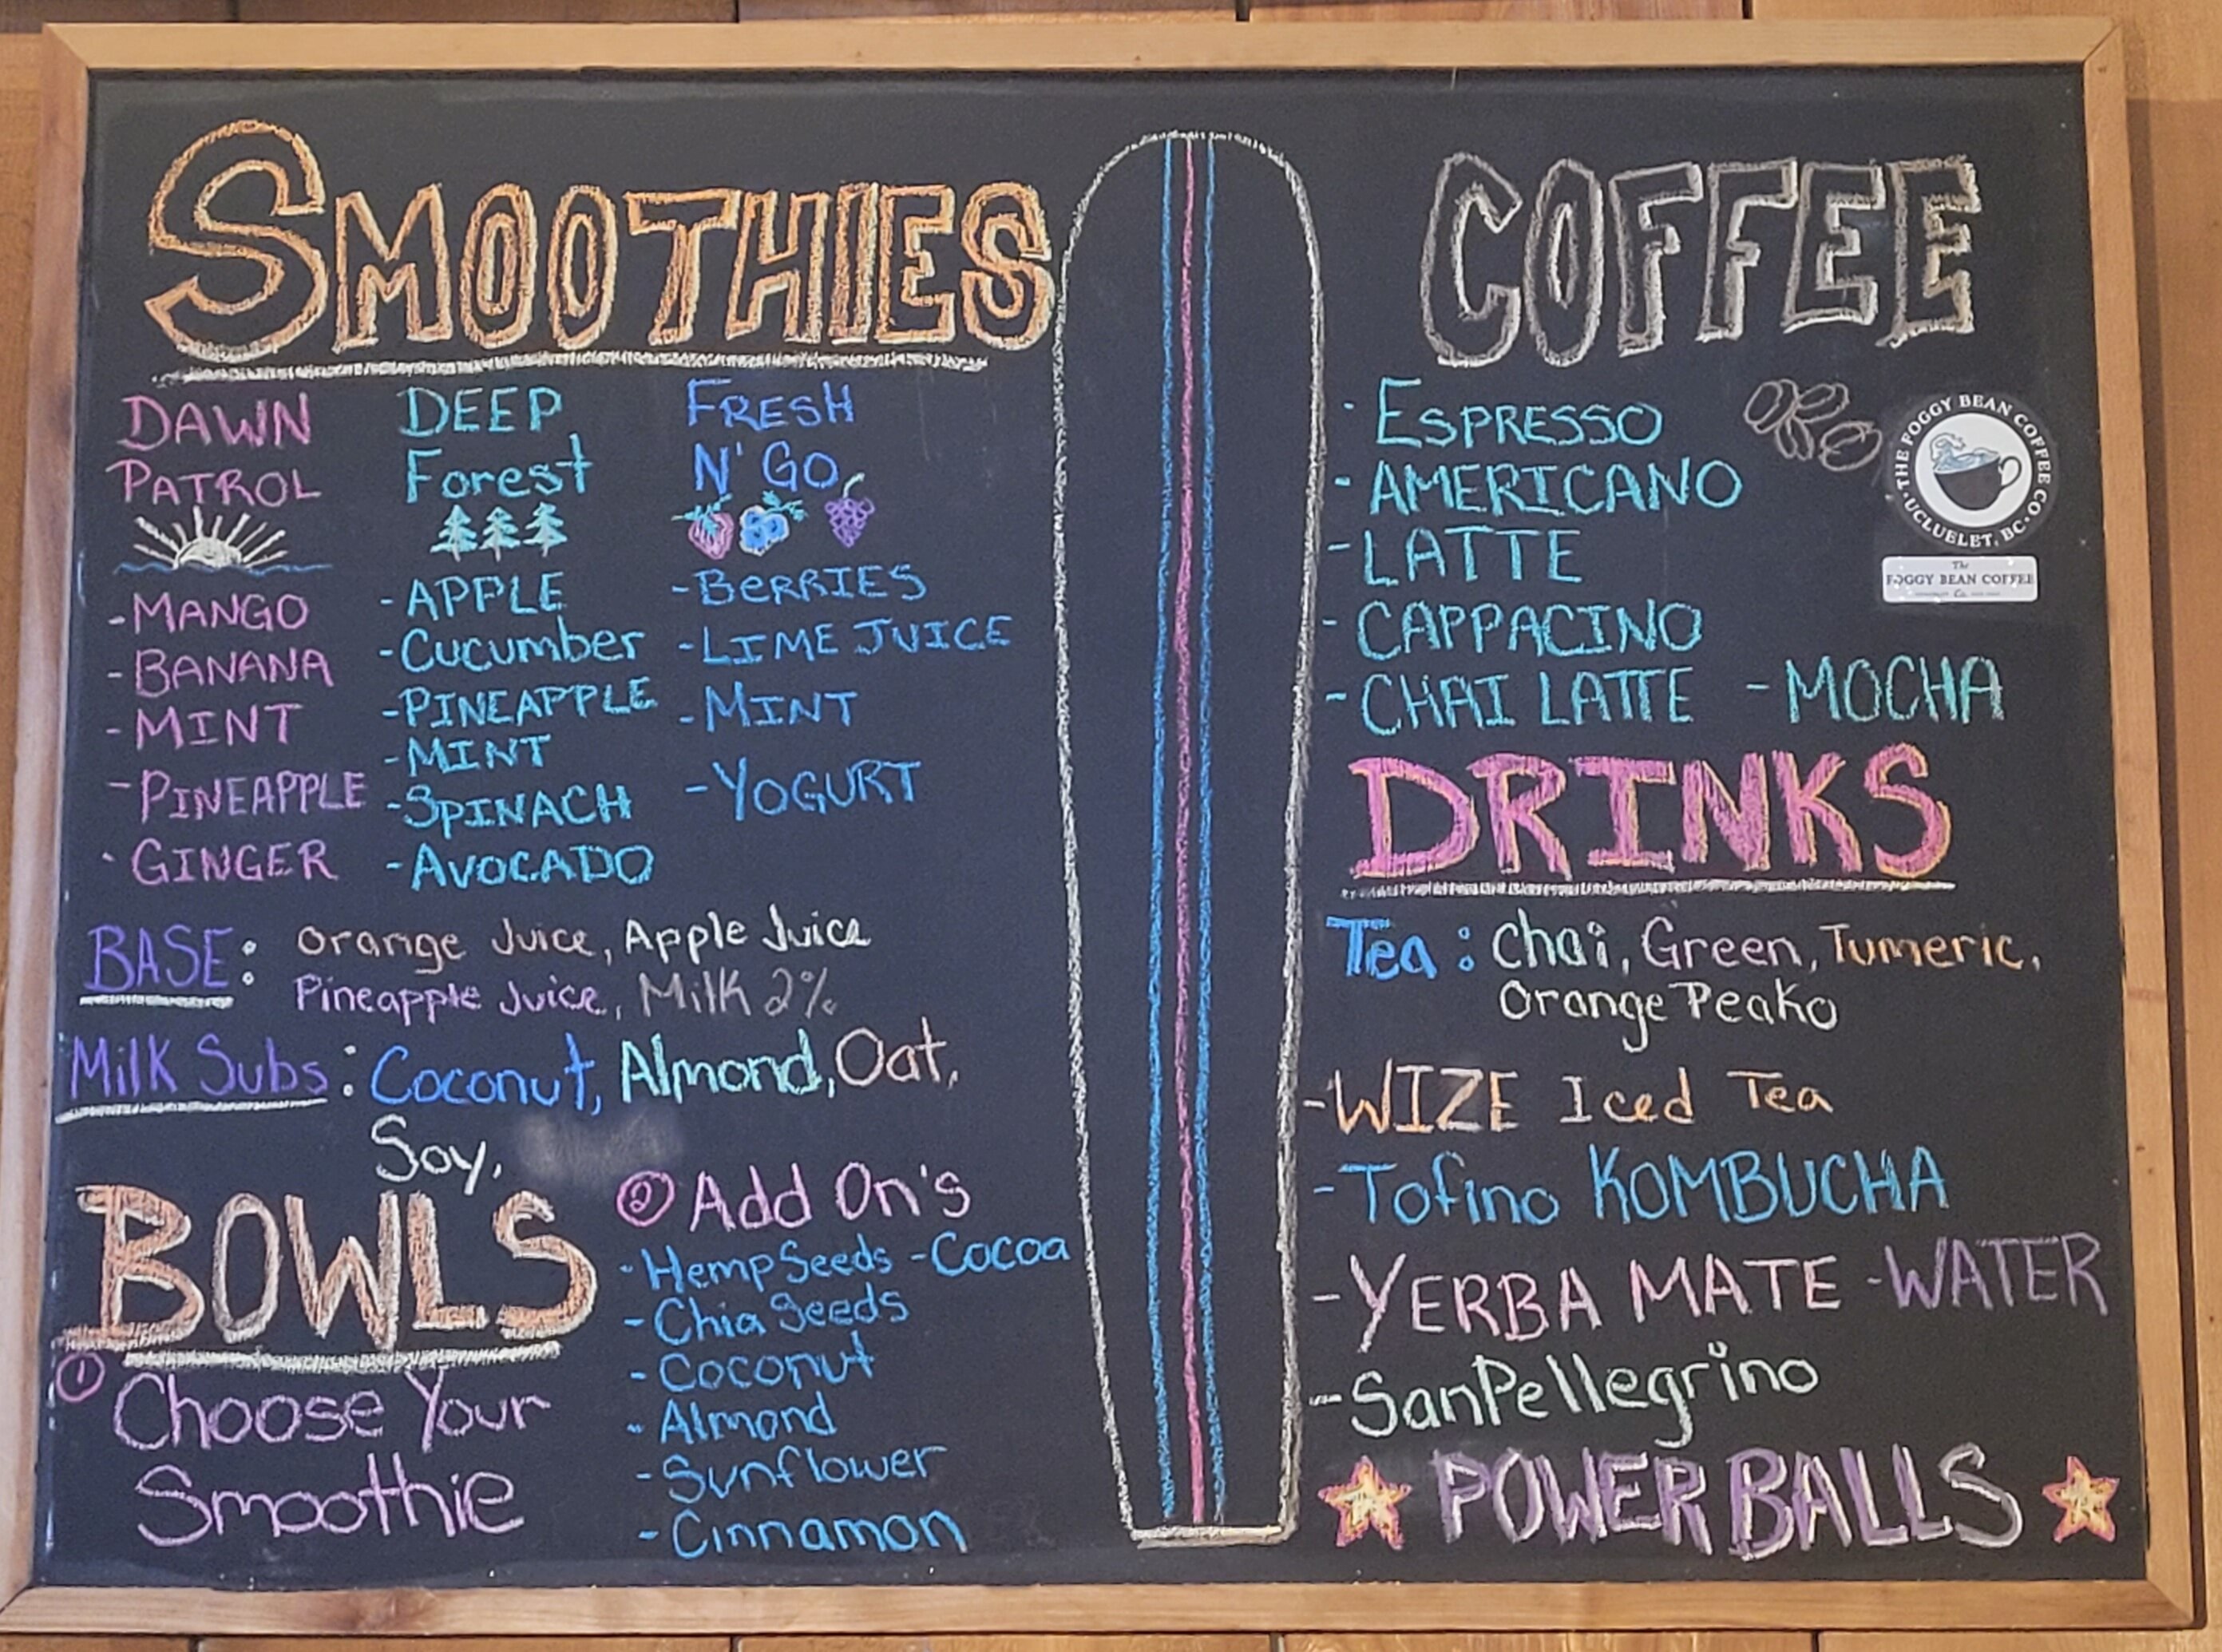 SMOOTHIES
DAWN
PATROL
- MANGO
- BANANA
- MINT
- PINEAPPLE
- GINGER
DEEP
Forest
- APPLE
- Cucumber
- PINEAPPLE
- MINT
- SPINACH
- AVOCADO
FRESH
N' GO
- BERRIES
- LIME JUICE
- MINT
- YOGURT
BASE: Orange Juice, Apple Juice
Pineapple Juice, Milk 2%
Milk Subs: Coconut, Almond, Oat,
Soy,
BOWLS
① Choose Your
Smoothie
② Add On's
- Hemp Seeds - Cocoa
- Chia Seeds
- Coconut
- Almond
- Sunflower
- Cinnamon
COFFEE
- ESPRESSO
- AMERICANO
- LATTE
- CAPPACINO
- CHAI LATTE - MOCHA
THE FOGGY BEAN COFFEE CO.
· UCLUELET, BC ·
The
FOGGY BEAN COFFEE
Co.
DRINKS
Tea: Chai, Green, Tumeric,
Orange Peako
- WIZE Iced Tea
- Tofino KOMBUCHA
- YERBA MATE - WATER
- SanPellegrino
POWER BALLS